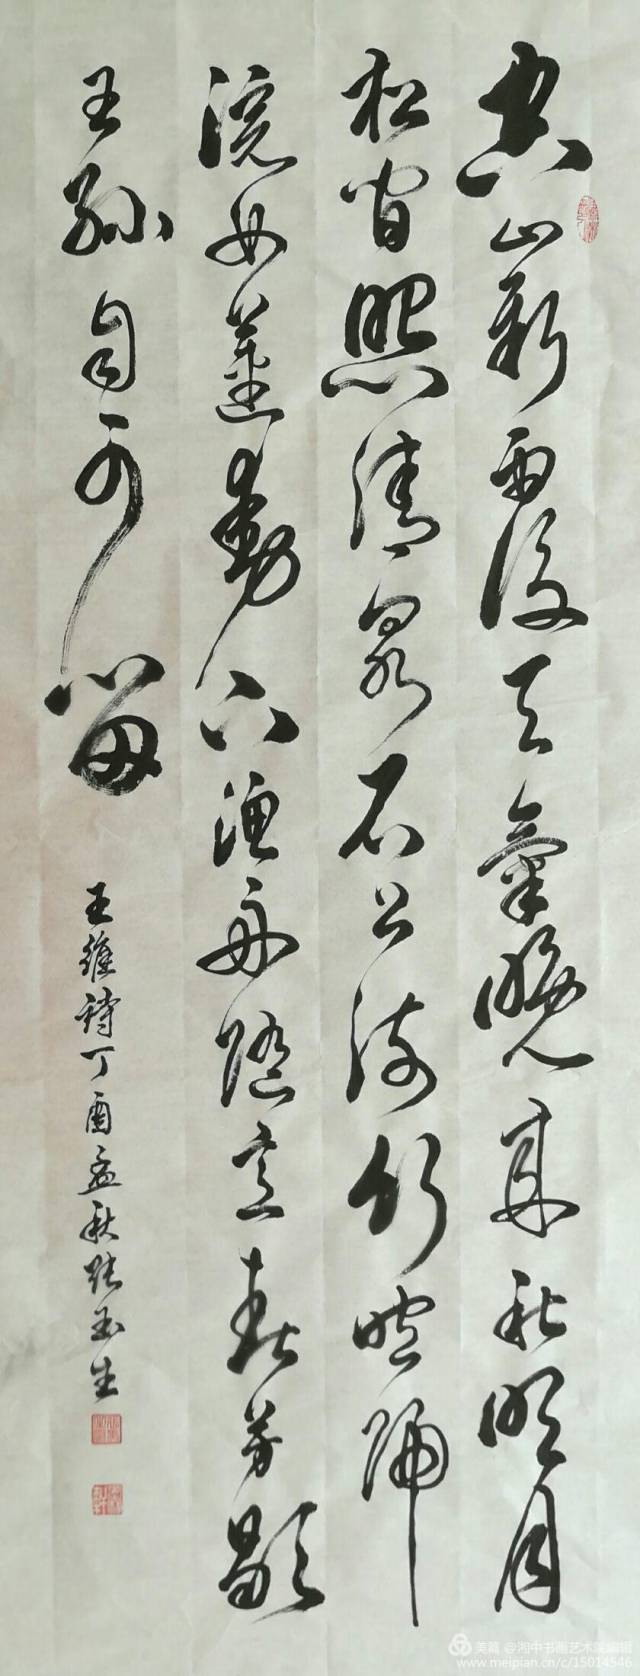 空山新雨後天氣晚來秋明月
松間照清泉石上流竹喧歸
浣女蓮動下漁舟隨意春芳歇
王孫自可留
王維詩丁酉孟秋張玉生
美篇 @湘中书画艺术院编辑
www.meipian.cn/c/15014546